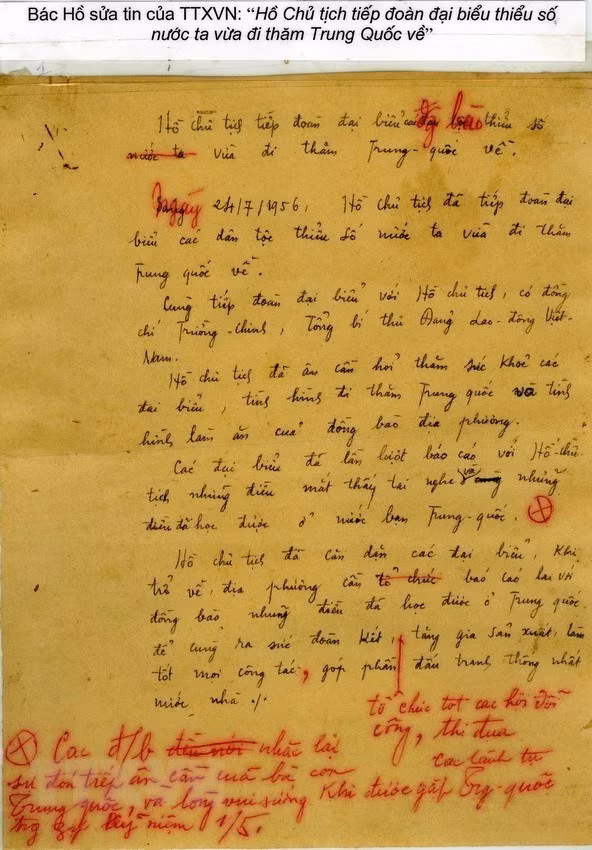 Bác Hồ sửa tin của TTXVN: “Hồ Chủ tịch tiếp đoàn đại biểu thiểu số
nước ta vừa đi thăm Trung Quốc về”
Hồ chủ tịch tiếp đoàn đại biểu đg bào thiểu số
nước ta vừa đi thăm Trung-quốc về.
Ngày 24/7/1956, Hồ chủ tịch đã tiếp đoàn đại
biểu các dân tộc thiểu số nước ta vừa đi thăm
Trung quốc về.
Cùng tiếp đoàn đại biểu với Hồ chủ tịch, có đồng
chí Trường-Chinh, Tổng bí thư Đảng Lao-động Việt-
Nam.
Hồ chủ tịch đã ân cần hỏi thăm sức khoẻ các
đại biểu, tình hình đi thăm Trung quốc và tình
hình làm ăn của đồng bào địa phương.
Các đại biểu đã lần lượt báo cáo với Hồ-chủ-
tịch những điều mắt thấy tai nghe và những
điều đã học được ở nước bạn Trung-quốc.
Hồ chủ tịch đã căn dặn các đại biểu, khi
trở về địa phương cần tổ chức báo cáo lại với
đồng bào những điều đã học được ở Trung quốc
để cùng ra sức đoàn kết, tăng gia sản xuất, làm
tốt mọi công tác, góp phần đấu tranh thống nhất
nước nhà ./.
tổ chức tốt các hội đổi
công, thi đua
Các đ/b nhắc lại
sự đón tiếp ân cần của bà con
Trung quốc, và lòng vui sướng khi được gặp các lãnh tụ Trg-quốc
trg dịp kỷ niệm 1/5.